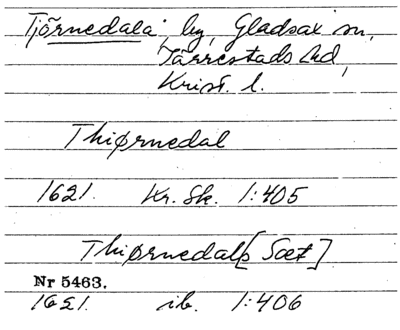 Tjörnedala, by, Gladsax sn,
Järrestads hd,
Krist. l.
Thiørnedal
1621. Kr. Sk. 1:405
Thiørnedals [Sœt]
Nr 5463.
1621. ib. 1:406